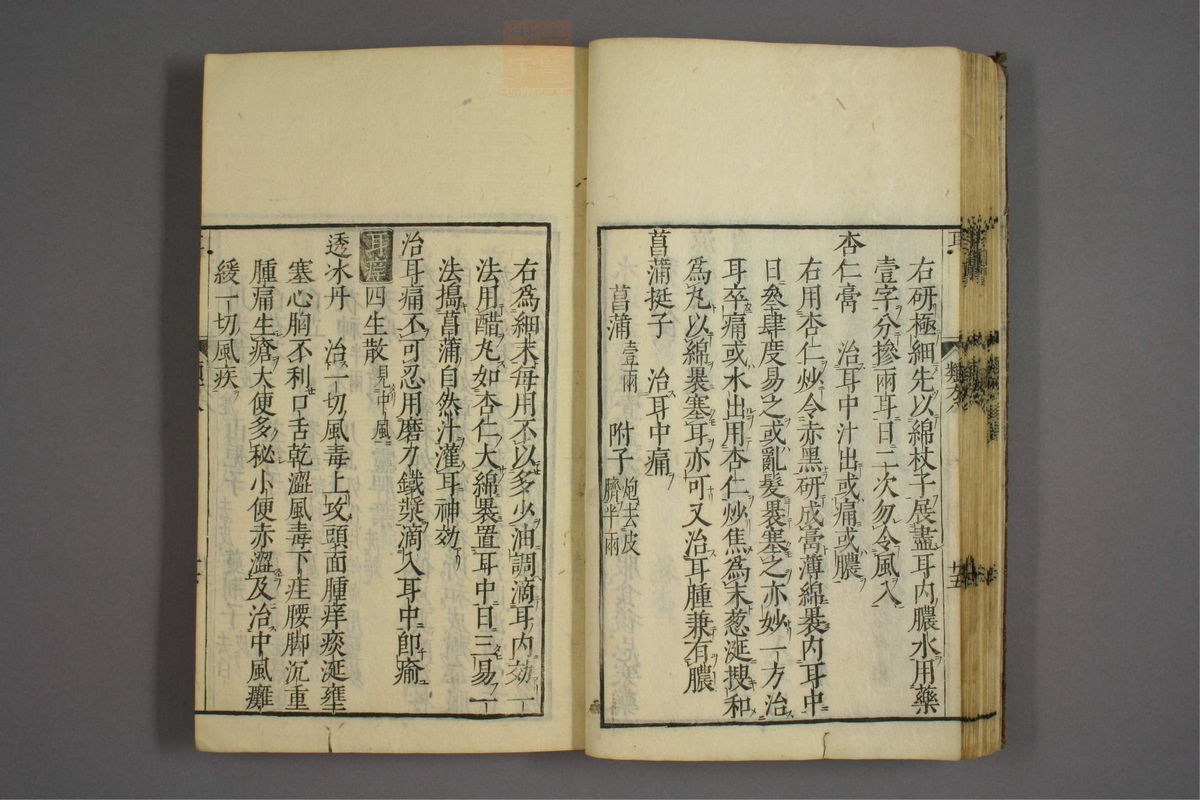 右研極細先以綿杖子展盡耳内膿水用藥
壹字分摻兩耳日二次勿令風入
杏仁膏　治耳中汁出或痛或膿
右用杏仁炒令赤黑研成膏薄綿裹内耳中
日叄肆度易之或亂髮裹塞之亦妙一方治
耳卒痛或水出用杏仁炒焦爲末葱涎搜和
爲丸以綿裹塞耳亦可又治耳腫兼有膿
菖蒲挺子　治耳中痛
菖蒲壹兩　附子炮去皮臍半兩
右爲細末每用不以多少油調滴耳内効一
法用醋丸如杏仁大綿裹置耳中日三易一
法搗菖蒲自然汁灌耳神効
治耳痛不可忍用磨刀鐵漿滴入耳中卽瘉
四生散見中風
透冰丹　治一切風毒上攻頭面腫痒痰涎壅
塞心胸不利口舌乾澀風毒下疰腰脚沉重
腫痛生瘡大便多秘小便赤澀及治中風癱
緩一切風疾